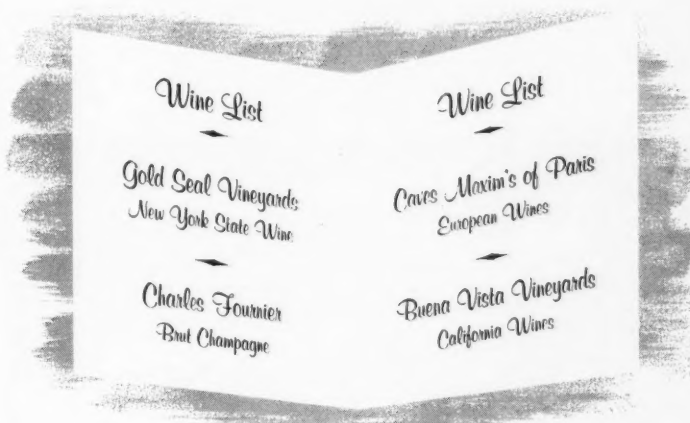 Wine List
Gold Seal Vineyards
New York State Wine
Charles Fournier
Brut Champagne
Wine List
Caves Maxim's of Paris
European Wines
Buena Vista Vineyards
California Wines